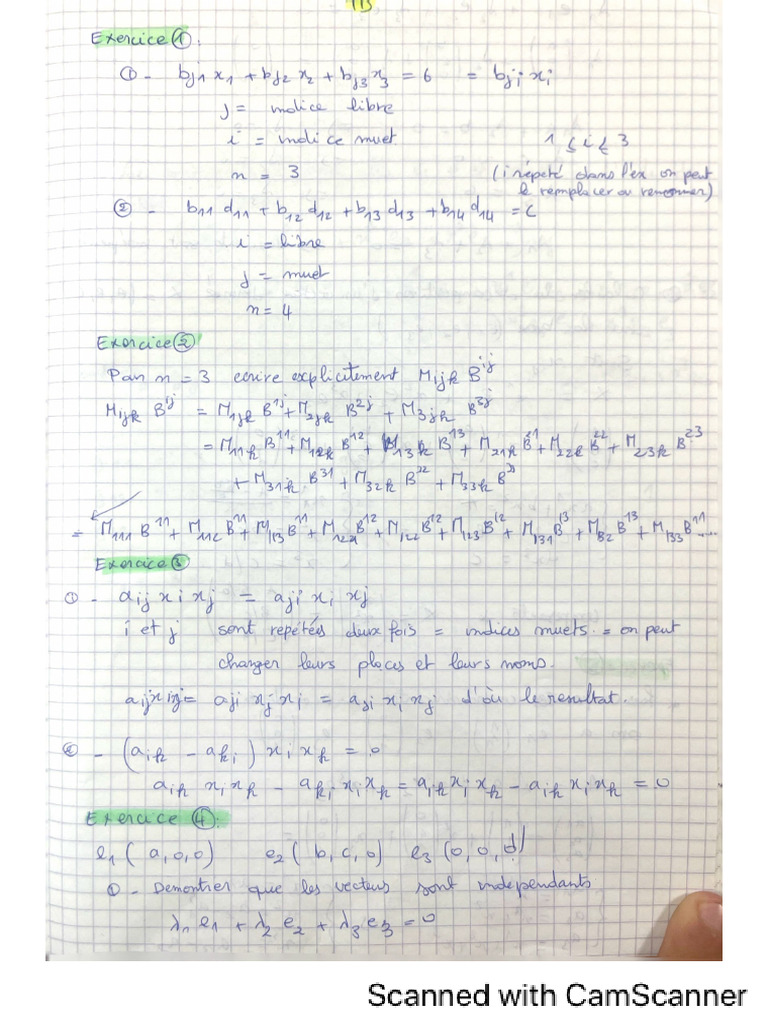 TD
Exercice ① :
① - bj1 x1 + bj2 x2 + bj3 x3 = 6 = bji xi
j = indice libre
i = indice muet 1 ≤ i ≤ 3
n = 3 (i répeté dans l'ex on peut
le remplacer ou renommer)
② - b11 d11 + b12 d12 + b13 d13 + b14 d14 = C
i = libre
j = muet
n = 4
Exercice ②
Pour n = 3 ecrire explicitement Mijk B^ij
Mijk B^ij = M1jk B^1j + M2jk B^2j + M3jk B^3j
= M11k B^11 + M12k B^12 + M13k B^13 + M21k B^21 + M22k B^22 + M23k B^23
+ M31k B^31 + M32k B^32 + M33k B^33
= M111 B^11 + M112 B^11 + M113 B^11 + M121 B^12 + M122 B^12 + M123 B^12 + M131 B^13 + M132 B^13 + M133 B^11 ....
Exercice ③
① - aij xi xj = aji xi xj
i et j sont repétées deux fois = indices muets = on peut
changer leurs places et leurs noms.
aij xi xj = aji xj xi = aji xi xj d'où le resultat.
② - (aik - aki) xi xk = 0
aik xi xk - aki xi xk = aik xi xk - aik xi xk = 0
Exercice ④ :
e1 (a,0,0) e2 (b,c,0) e3 (0,0,d)
① - Demontrer que les vecteurs sont independants
λ1 e1 + λ2 e2 + λ3 e3 = 0
Scanned with CamScanner